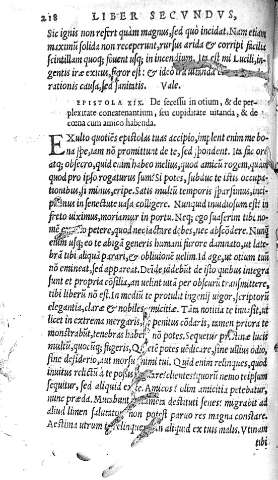 218 LIBER SECVNDVS,
Sic ignis non refert quàm magnus, sed quò incidat. Nam etiam
maximũ solida non receperunt, rursus arida & corripi facilia
scintillam quoq; fouent usq; in incendium. Ita est mi Lucili, in-
gentis iræ exitus, furor est: & ideo ira uitanda
rationis causa, sed sanitatis. Vale.
EPISTOLA XIX. De secessu in otium, & de per-
plexitate concatenantium, seu cupiditate uitanda, & de
cœna cum amico habenda.
EXulto quoties epistolas tuas accipio, implent enim me bo-
na spe, iam nõ promittunt de te, sed spondent. Ita fac oro
atq; obsecro, quid enim habeo melius, quod amicũ rogem, quàm
quod pro ipso rogaturus sum? Si potes, subduc te istis occupa-
tionibus, si minus, eripe. Satis multũ temporis sparsimus, inci-
piamus in senectute uasa colligere. Nunquid inuidiosum est? in
freto uiximus, moriamur in portu. Neq; ego suaserim tibi no-
men petere, quod nec iactare debes, nec abscõdere. Nunq
enim usq; eo te abigã generis humani furore damnato, ut late-
brã tibi aliquã parari, & obliuionẽ uelim. Id age, ut otium tuũ
nõ emineat, sed appareat. Deinde uidebũt de isto quibus integra
sunt et propria cõsilia, an uelint uitã per obscurũ transmittere,
tibi liberũ nõ est. In mediũ te protulit ingenij uigor, scriptorũ
elegantia, claræ & nobiles amicitiæ. Iam notitia te inuasit, ut
licet in extrema mergaris, penitus cõdaris, tamen priora te
monstrabũt, tenebras habere nõ potes. Sequetur pristinæ lucis
multũ, quocunq; fugeris. Quietẽ potes uẽdicare, sine ullius odio,
sine desiderio, aut morsu animi tui. Quid enim relinques, quod
inuitus relictũ à te possis clientes? quorũ nemo te ipsum
sequitur, sed aliquid ex te. Amicos? olim amicitia petebatur,
nunc præda. Mutabunt destituti senes: migrabit ad
aliud limen salutator. non potest paruo res magna constare.
Aestima utrum te relinquere, an aliquid ex tuis malis. Vtinam
tibi